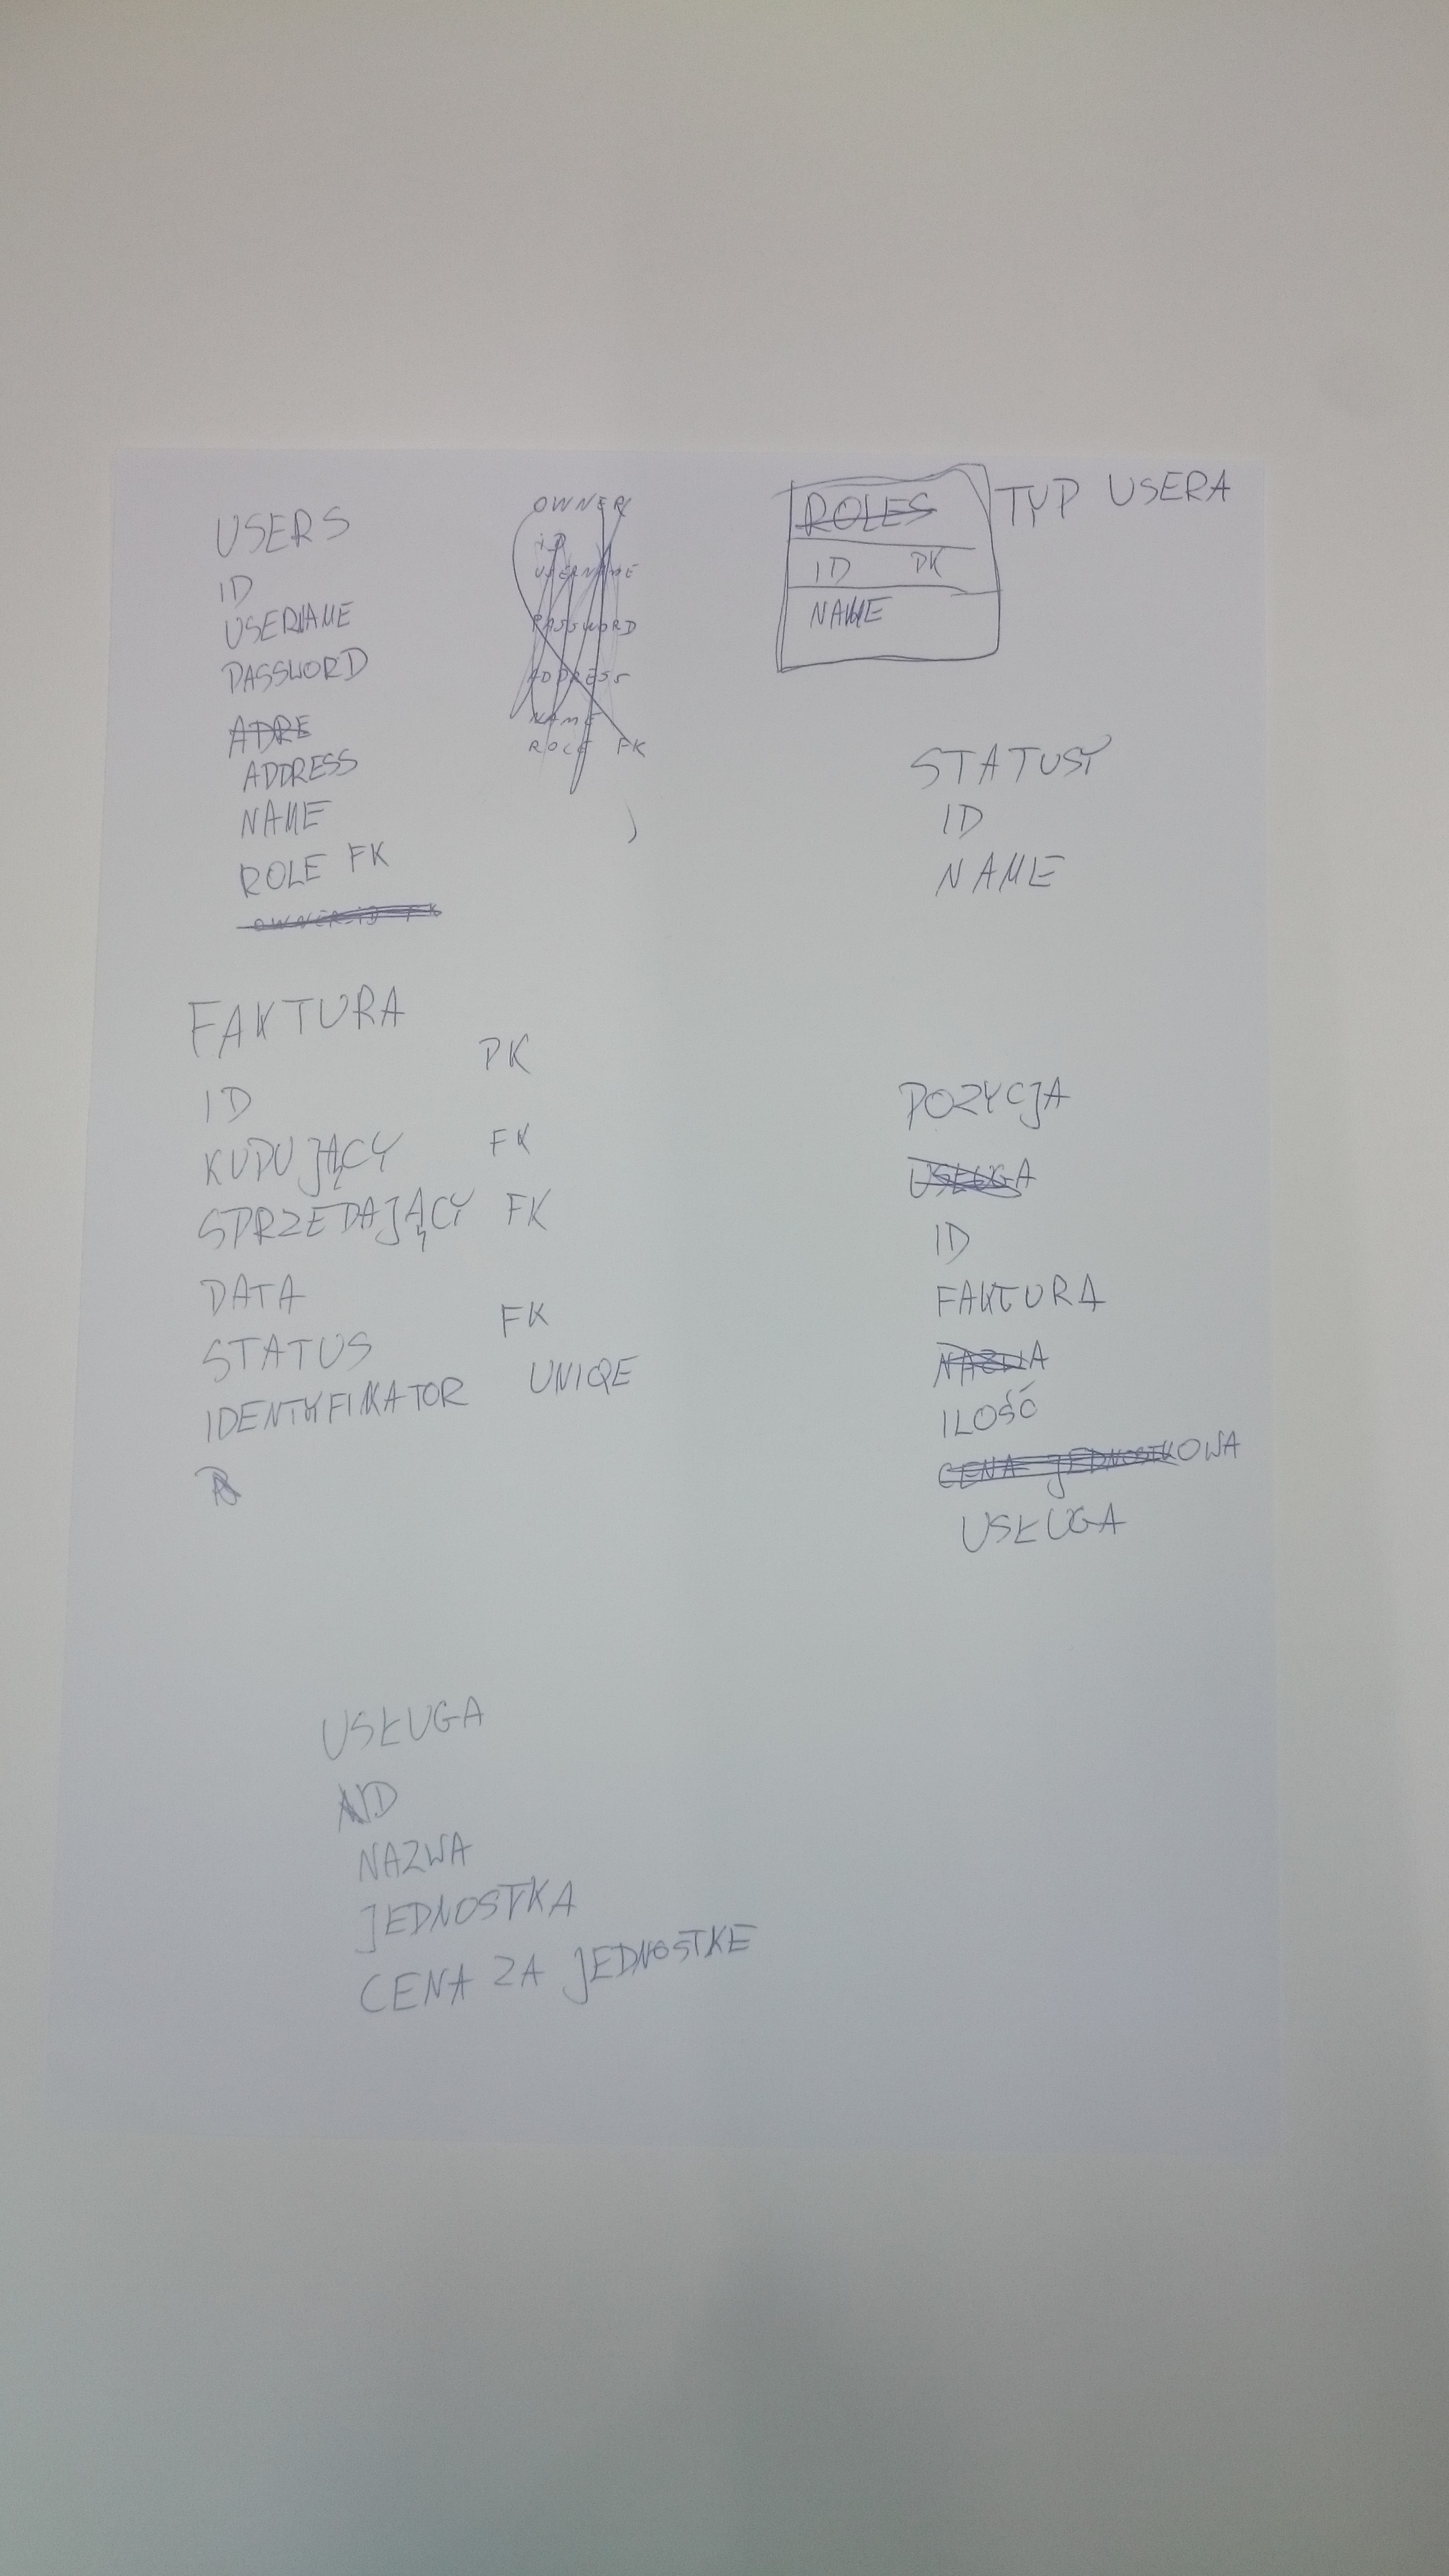 USERS
ID
USERNAME
PASSWORD
ADRE
ADDRESS
NAME
ROLE FK
OWNER_ID FK
OWNER
ID
USERNAME
PASSWORD
ADDRESS
NAME
ROLE FK
ROLES TYP USERA
ID PK
NAME
STATUSY
ID
NAME
FAKTURA
ID PK
KUPUJĄCY FK
SPRZEDAJĄCY FK
DATA
STATUS FK
IDENTYFIKATOR UNIQE
POZYCJA
USŁUGA
ID
FAKTURA
NAZWA
ILOŚĆ
CENA JEDNOSTKOWA
USŁUGA
USŁUGA
ID
NAZWA
JEDNOSTKA
CENA ZA JEDNOSTKE